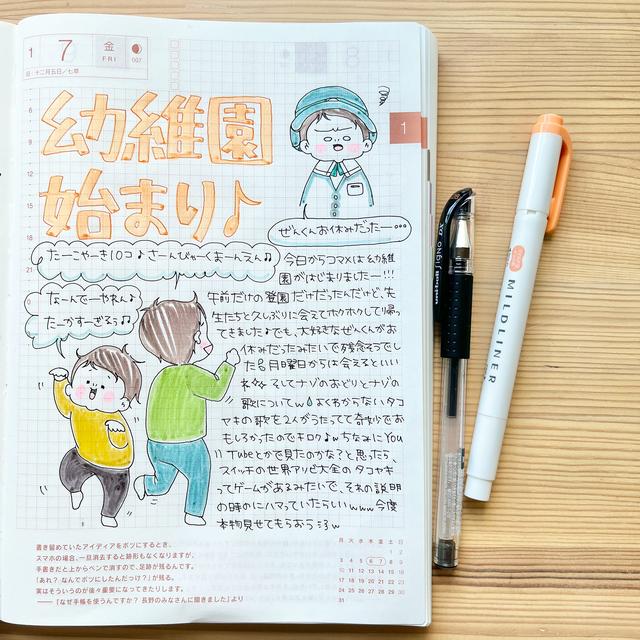 1
7
金
FRI
007
旧：十二月五日／七草
幼稚園
始まり♪
1
ぜんくんお休みだったー…
たーこやーき10コ♪さーんびゃーくまーんえん♫
なーんでーやねん♪
たーかすーぎるぅ♫
今日からコマメは幼稚
園がはじまりましたー!!!
午前だけの登園だけだったんだけど、先
生たちと久しぶりに会えてホクホクして帰っ
てきました♪でも、大好きなぜんくんがお
休みだったみたいで残念そうでし
た。月曜日からは会えるといい
ね そしてナゾのおどりとナゾの
歌についてw よくわからないタコ
ヤキの歌を2人がうたってて奇妙でお
もしろかったのでキロク♪w ちなみにYou
Tubeとかで見たのかな？と思ったら、
スイッチの世界アソビ大全のタコヤキ
ってゲームがあるみたいで、それの説明
の時のにハマっていたらしいwww今度
本物見せてもらおうw
6
9
12
15
18
21
0
書き留めていたアイディアをボツにするとき、
スマホの場合、一旦消去すると跡形もなくなりますが、
手書きだと上からペンで消すので、足跡が残るんです。
「あれ？なんでボツにしたんだっけ？」が残る。
実はそういうのが後々重要になってきたりします。
——『なぜ手帳を使うんですか？ 長野のみなさんに聞きました』より
月 火 水 木 金 土 日
1 2
3 4 5 6 7 8 9
10 11 12 13 14 15 16
17 18 19 20 21 22 23
24 25 26 27 28 29 30
31
Signo
MILDLINER